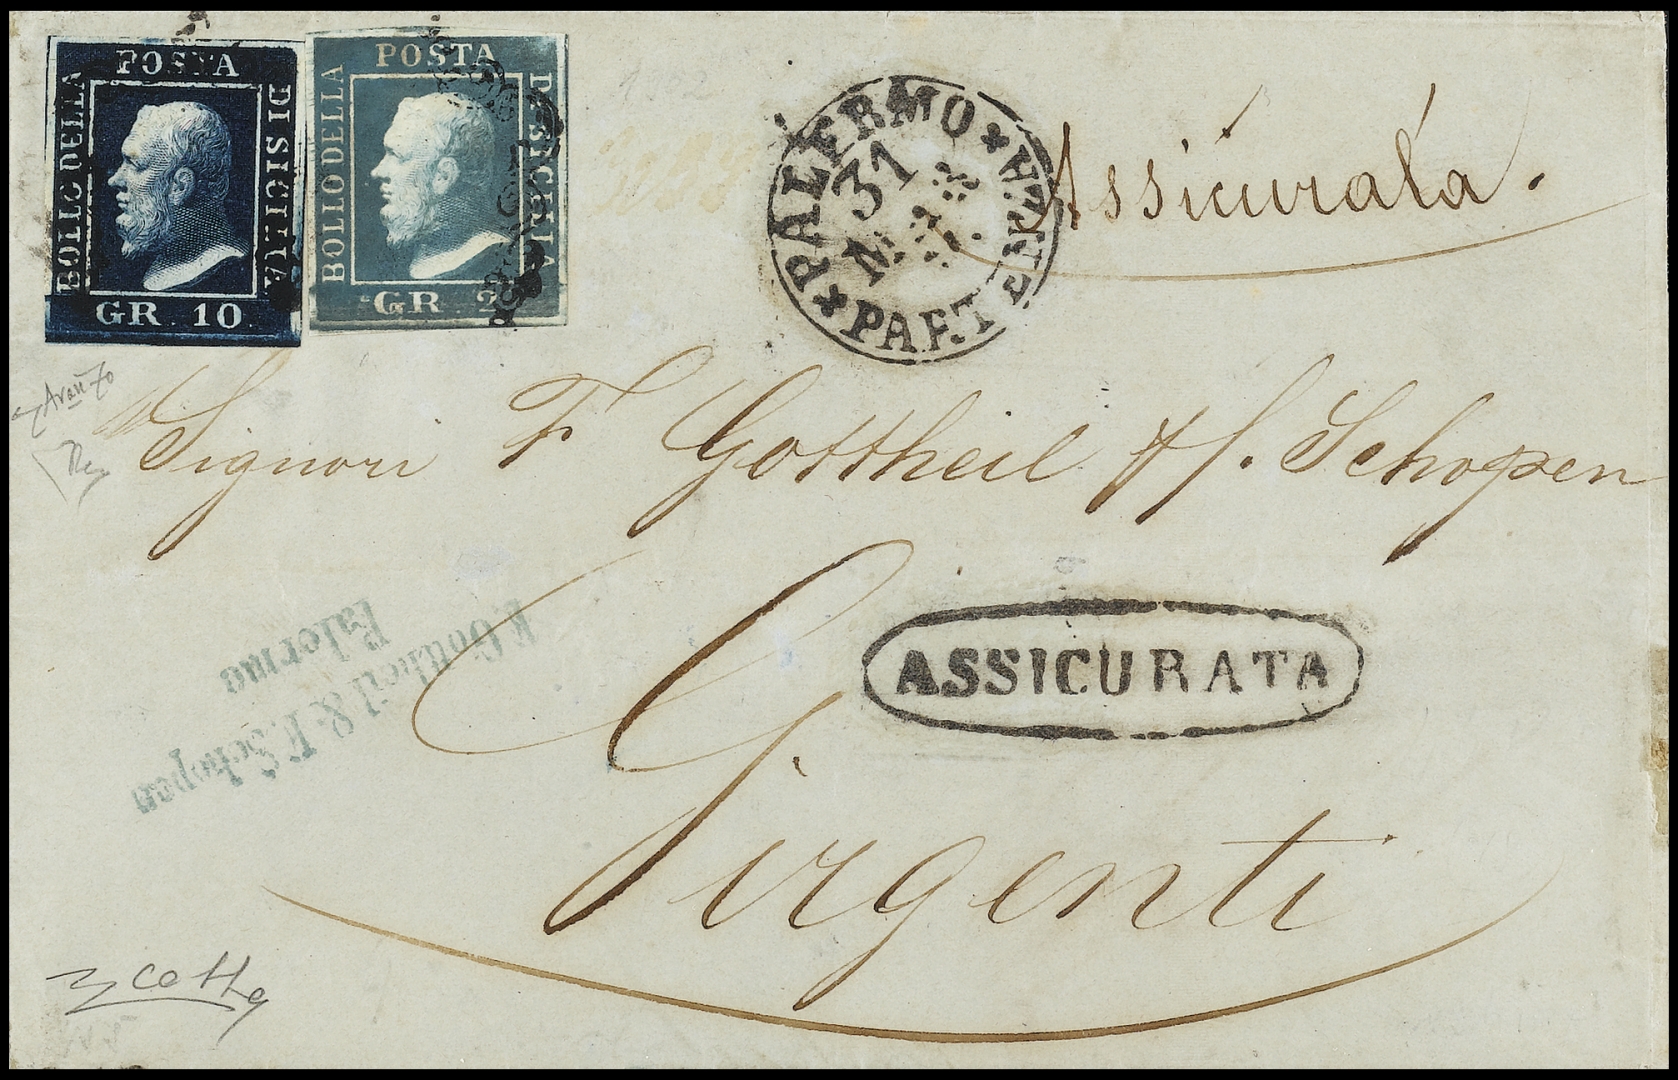 POSTA
BOLLO DELLA
DI SICILIA
GR. 10.
POSTA
BOLLO DELLA
DI SICILIA
GR. 2
PALERMO
31
PARTENZA
Assicurata.
Signori F Gottheil & f. Schopen
ASSICURATA
F. Gottheil & F. Schopen
Palermo
Girgenti